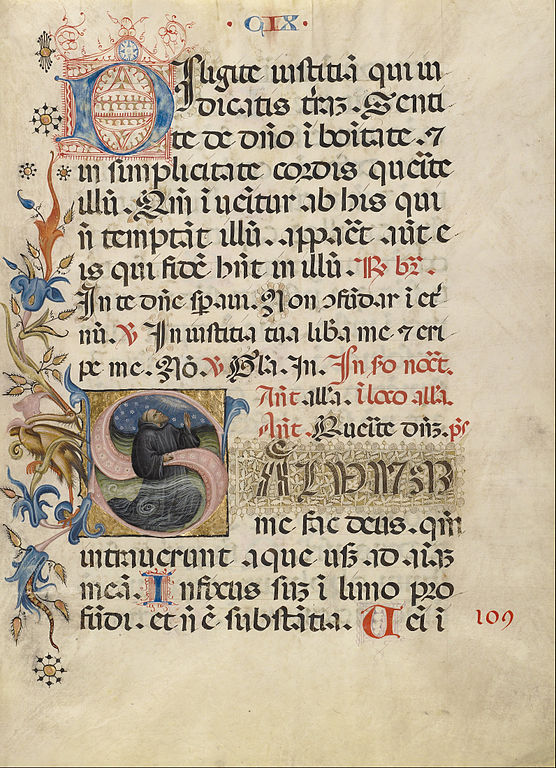 · CIX ·
Diligite iustitiã qui iu
dicatis trãʒ. Senti
te de dño ĩ boĩtate. ⁊
in simplicitate cordis querite
illũ. Qm̃ ĩuẽitur ab his qui
ñ temptãt illũ. appaɾet aũt e
is qui fidẽ hñt in illũ. R̃ br̃.
In te dñe sp̃aui. Non ꝯfũdar ĩ et̾
nũ. V In iustitia tua lib̾a me ⁊ eri
pe me. Nõ. V Gl̃a. In. In fo noct̃.
Añt alla. ĩ loco alla.
Añt. Q̃uerite dñʒ. pš
SALVUM
me fac deus. qm̃
intrauerunt aque usqʒ ad aĩaʒ
meã. Infixus suʒ ĩ limo pro
fũdi. et ñ ẽ substãtia. Uei ĩ
109